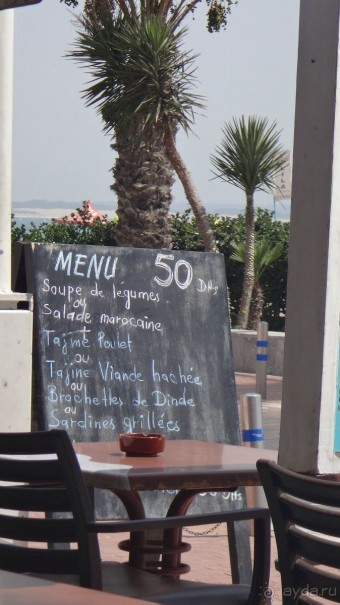 MENU 50 DHs
Soupe de legumes
ou
Salade marocaine
+
Tajine Poulet
ou
Tajine Viande hachée
ou
Brochettes de Dinde
ou
Sardines grillées
DHs
ayda.ru